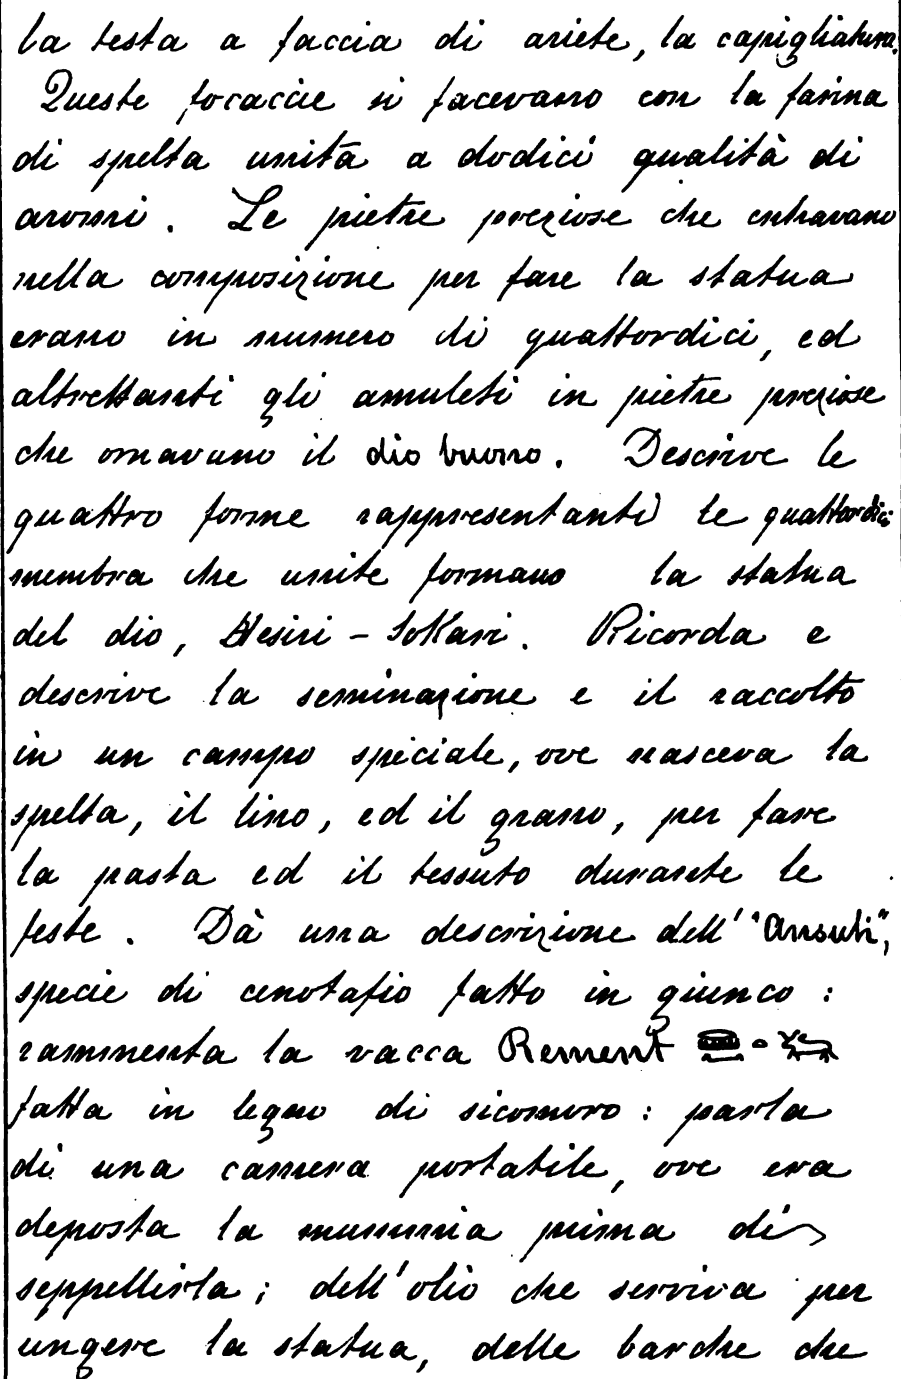 la testa a faccia di ariete, la capigliatura.
Queste focaccie si facevano con la farina
di spelta unita a dodici qualità di
aromi. Le pietre preziose che entravano
nella composizione per fare la statua
erano in numero di quattordici, ed
altrettanti gli amuleti in pietre preziose
che ornavano il dio buono. Descrive le
quattro forme rappresentanti le quattordici
membra che unite formano la statua
del dio, Hesiri - Sokari. Ricorda e
descrive la seminazione e il raccolto
in un campo speciale, ove nasceva la
spelta, il lino, ed il grano, per fare
la pasta ed il tessuto durante le
feste. Dà una descrizione dell' "Ansuti",
specie di cenotafio fatto in giunco:
rammenta la vacca Rement
fatta in legno di sicomoro: parla
di una camera portatile, ove era
deposta la mummia prima di
seppellirla; dell'olio che serviva per
ungere la statua, delle barche che